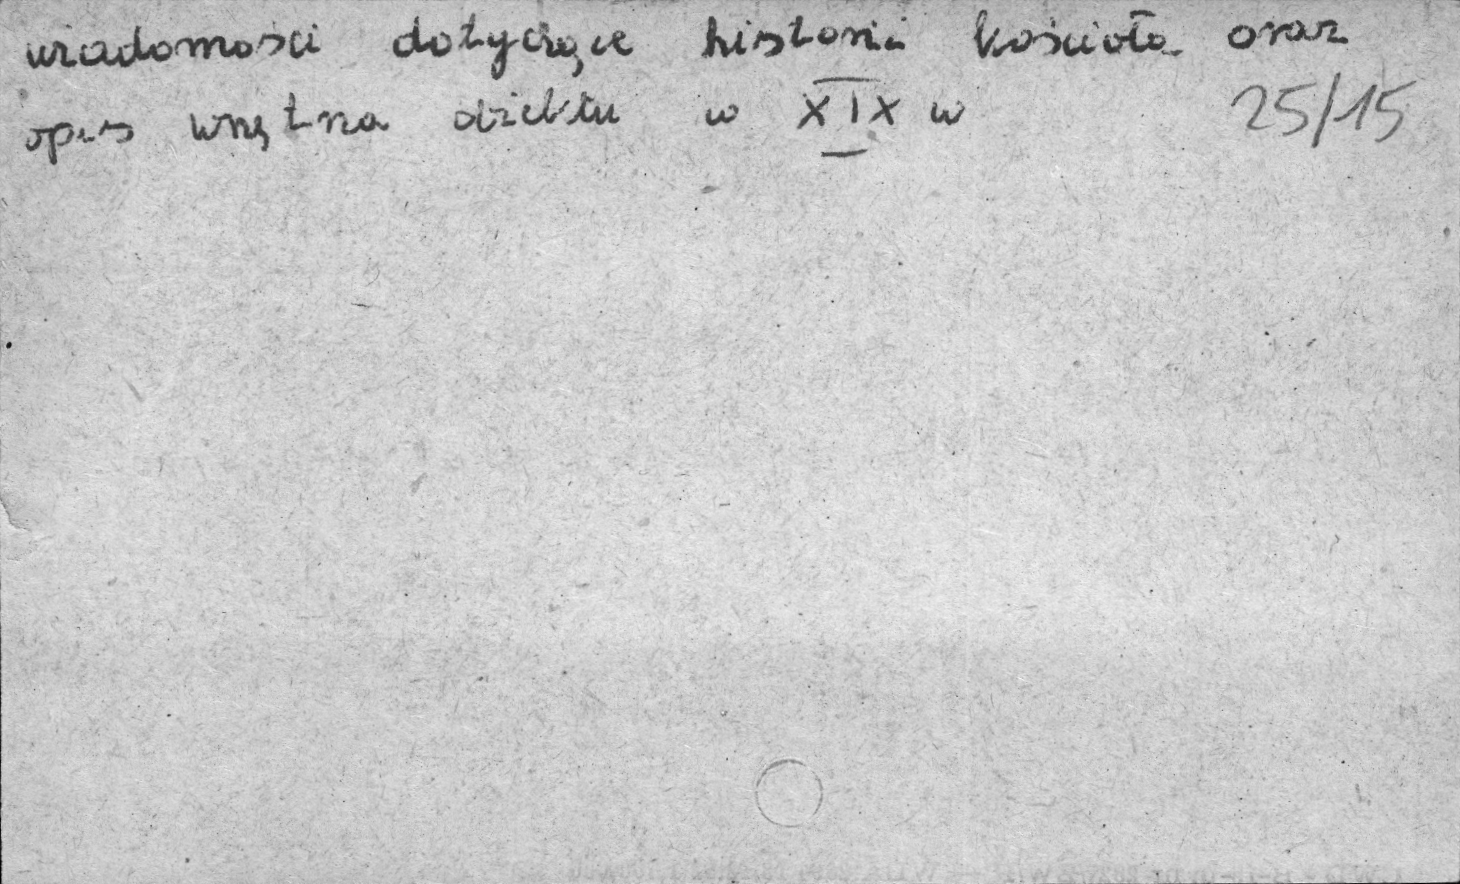 wiadomości dotyczące historii kościoła oraz
opis wnętrza obiektu w XIX w 25/15